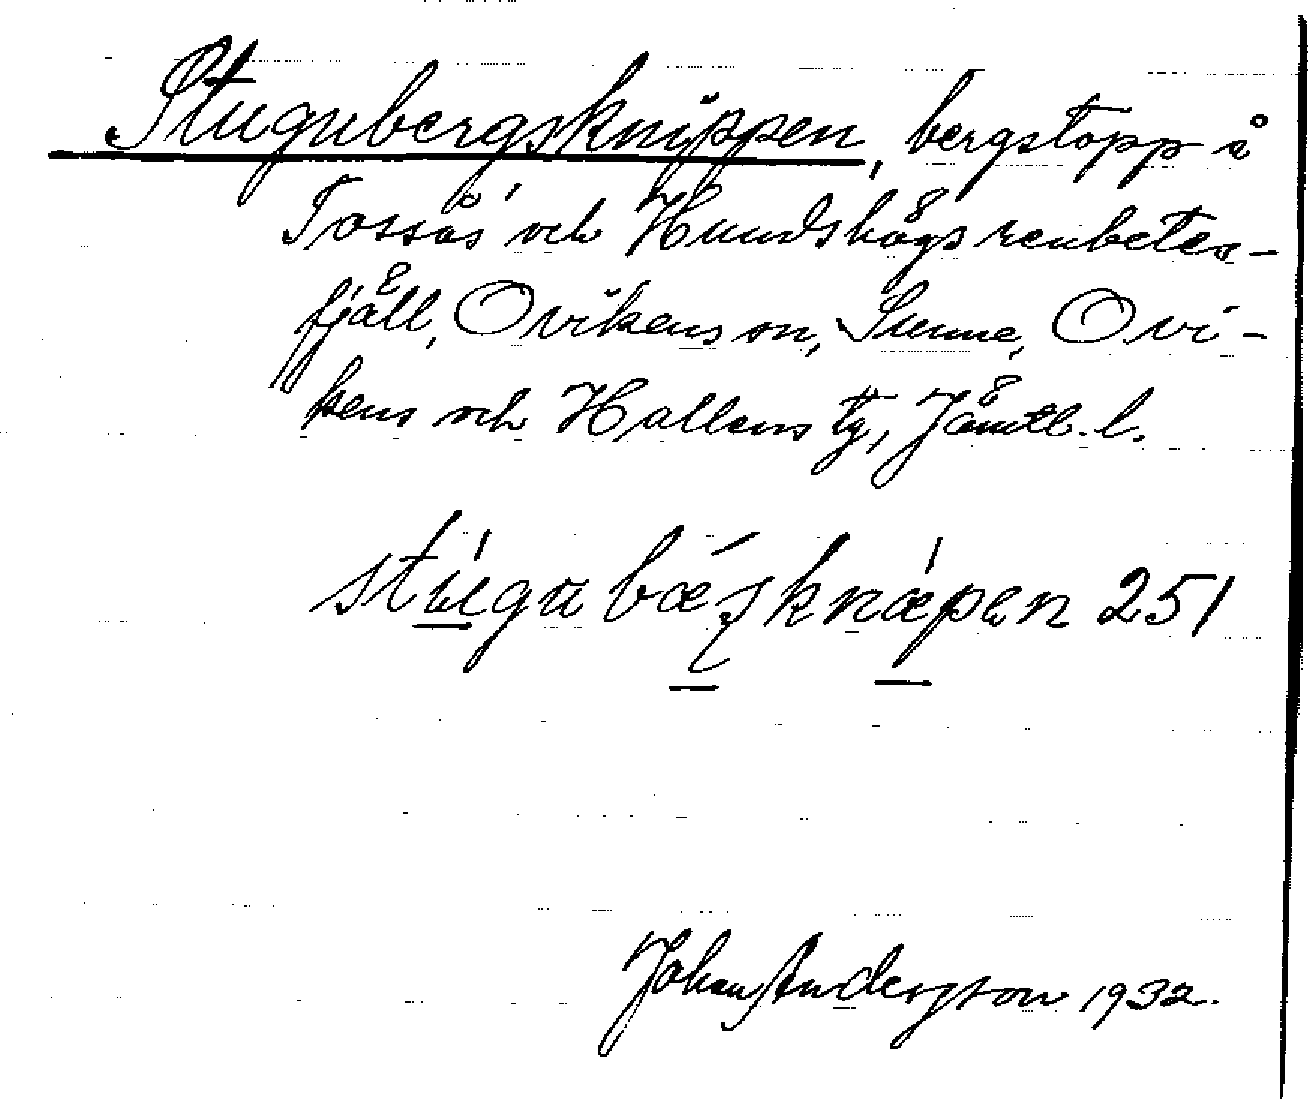 Stugubergsknippen, bergstopp å
Tossås' och Hundshögs renbetes-
fjäll, Ovikens sn, Sunne, Ovi-
kens och Hallens tg, Jämtl. l.
stúgu bǽʂknǽpen 251
Johan Anderson 1932.